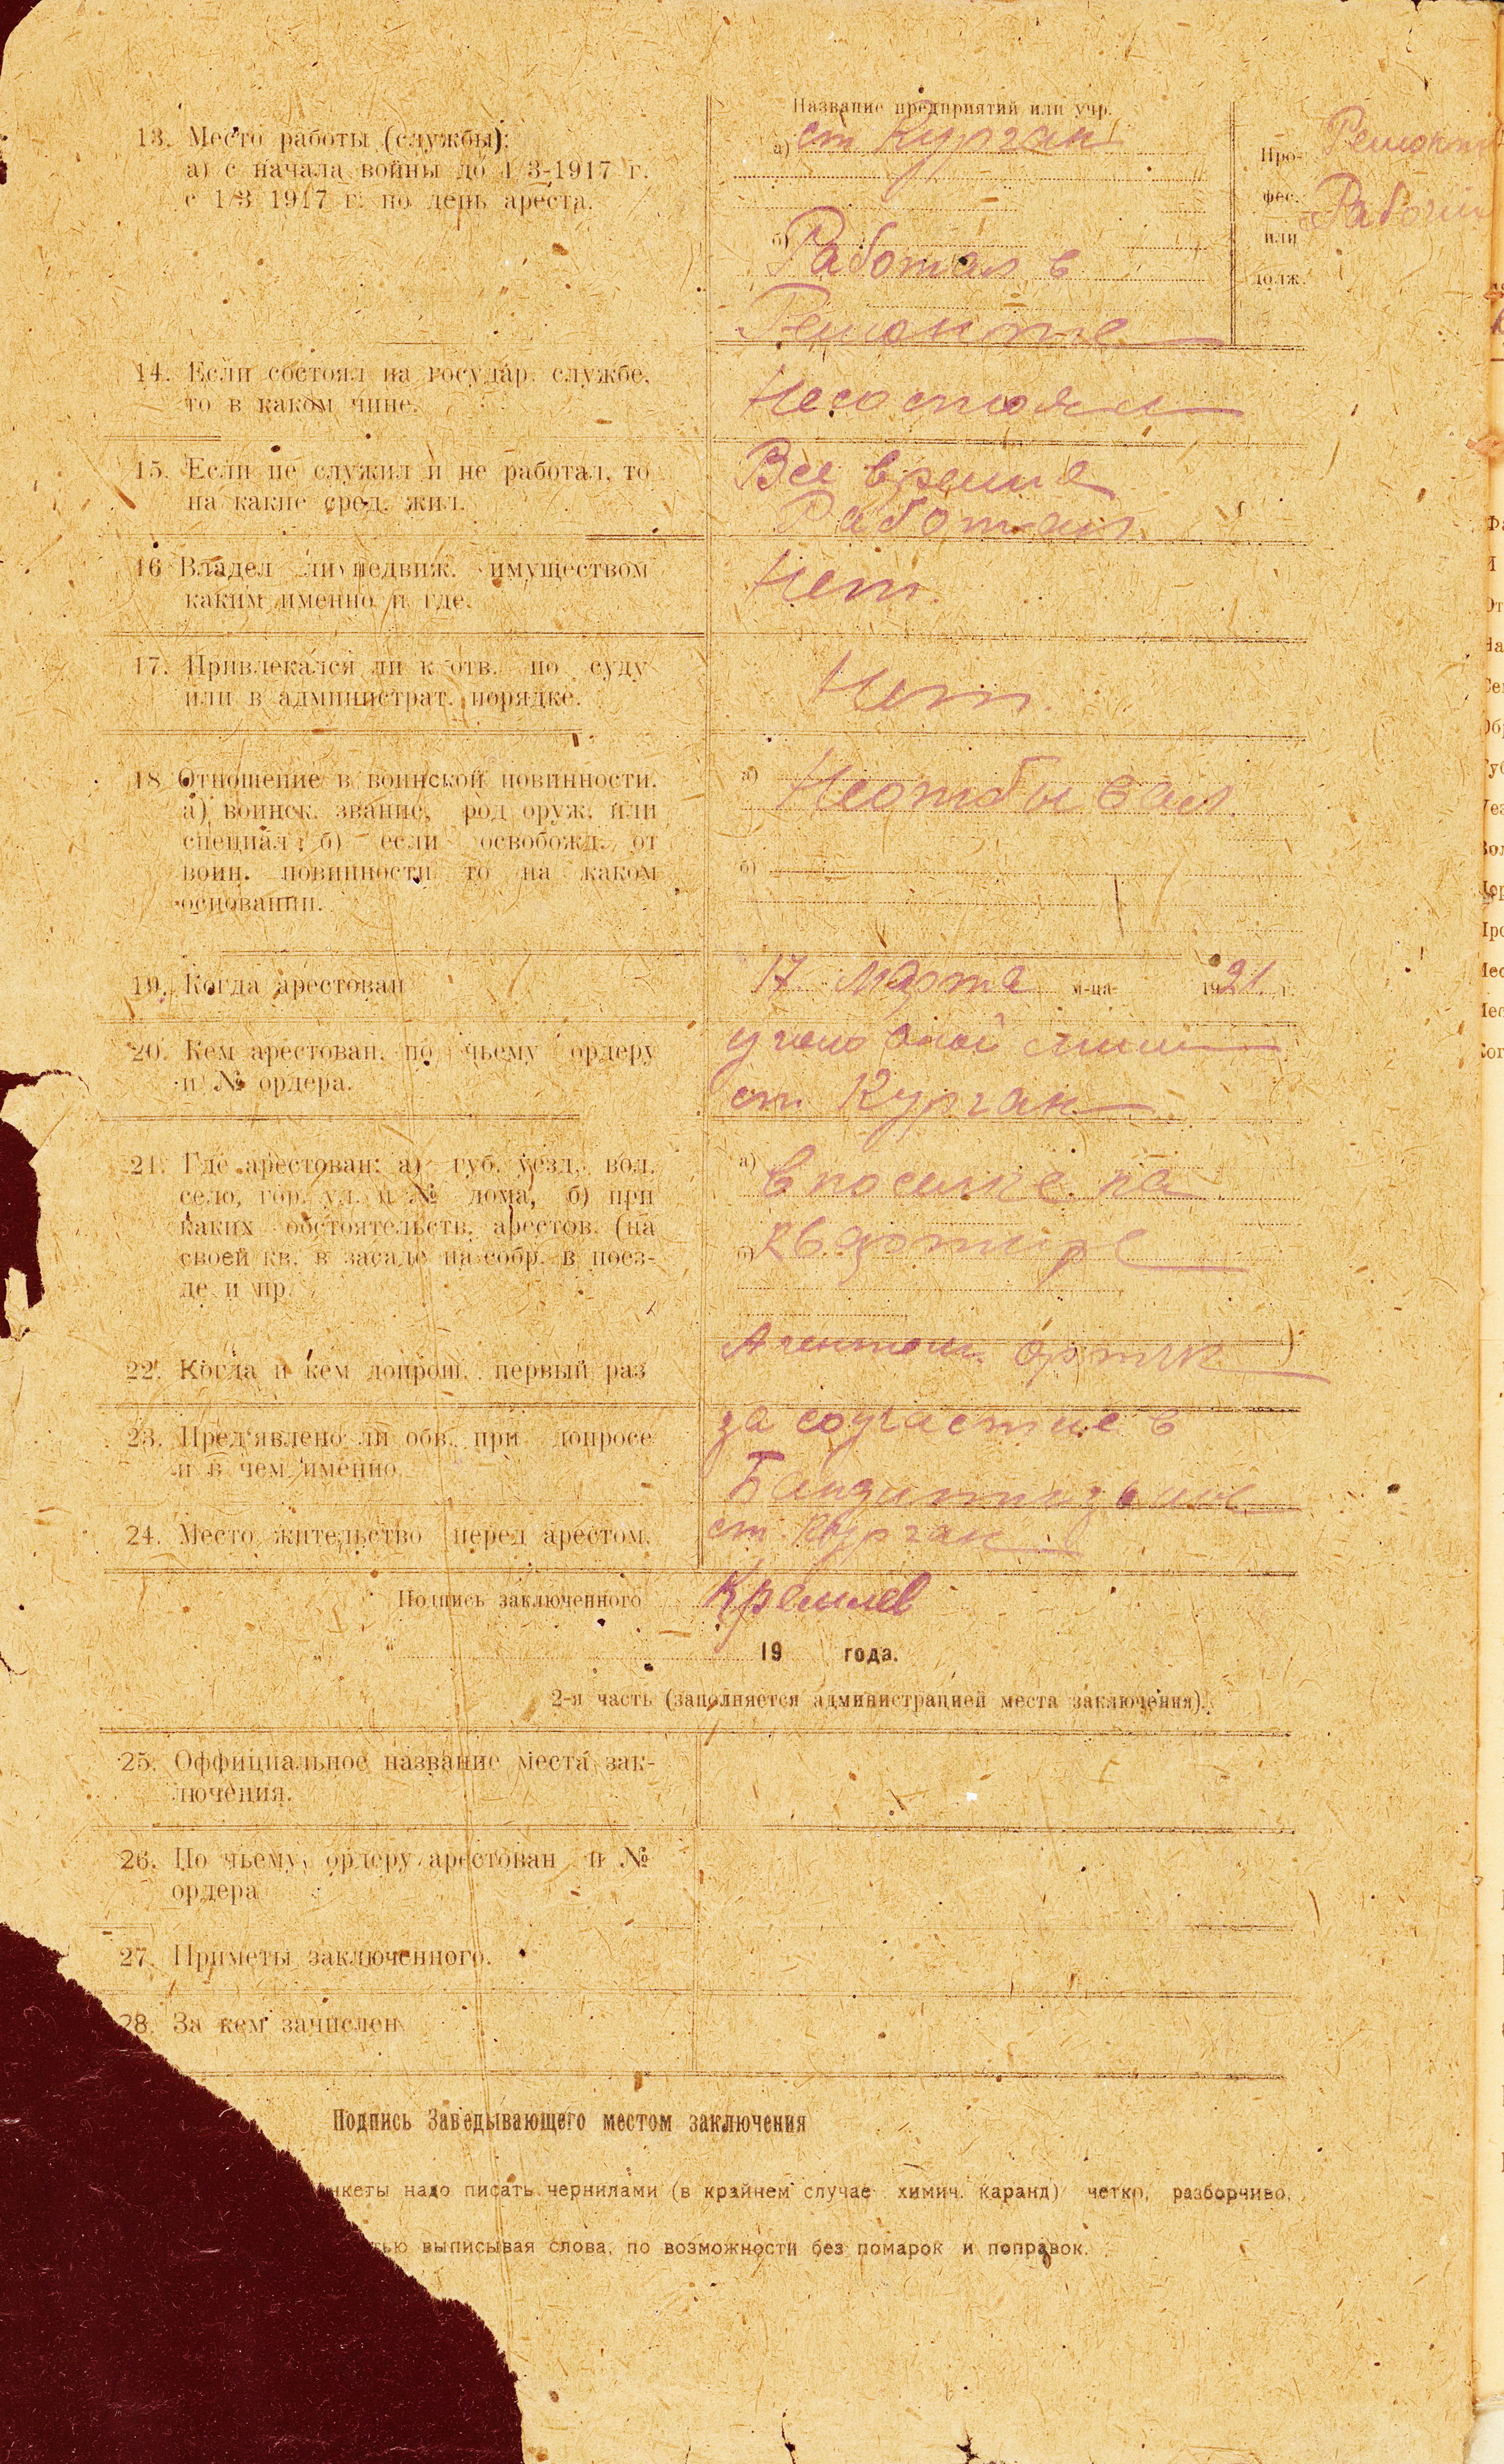 Название предприятий или учр.
13. Место работы (службы):
а) с начала войны до 1/3-1917 г.
с 1/3 1917 г. по день ареста.
а) ст Курган
б) Работал в
Ремонте
Про-
фес.
или
долж.
Ремонт
Рабочий
14. Если состоял на государ. службе,
то в каком чине.
Несостоял
15. Если не служил и не работал, то
на какие сред. жил.
Все время
Работал
16 Владел ли недвиж. имуществом
каким именно и где.
Нет.
17. Привлекался ли к отв. по суду
или в администрат. порядке.
Нет.
18 Отношение в воинской повинности.
а) воинск. звание, род оруж. или
специал; б) если освобожд. от
воин. повинности то на каком
основании.
а) Неотбывал.
б)
19. Когда арестован
17 Марта м-ца 1921 г.
20. Кем арестован, по чьему ордеру
и № ордера.
уголовной
ст. Курган
21. Где арестован: а) губ. уезд, вол.
село, гор. ул. и № дома, б) при
каких обстоятельств. арестов. (на
своей кв. в засаде на собр. в поез-
де и пр.
а) в поселке на
б) квартире
22. Когда и кем допрош. первый раз
Агентом
23. Пред'явлено ли обв. при допросе
и в чем именно.
за соучастие в
Бандитизме
24. Место жительство перед арестом.
ст. Курган
Подпись заключенного Кремлев
19 года.
2-я часть (заполняется администрацией места заключения).
25. Оффициальное название места зак-
лючения.
26. По чьему, ордеру арестован и №
ордера
27. Приметы заключенного.
28. За кем зачислен.
Подпись Заведывающего местом заключения
нкеты надо писать чернилами (в крайнем случае химич. каранд) четко, разборчиво,
тью выписывая слова, по возможности без помарок и поправок.